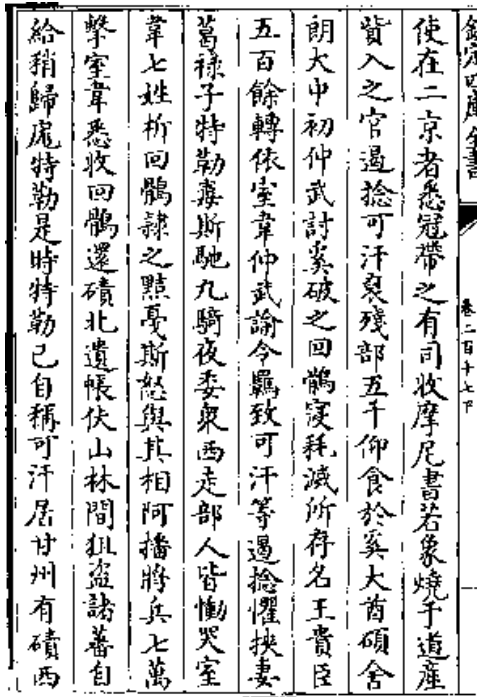 欽定四庫全書
卷二百十七下
使在二京者悉冠帶之有司收摩尼書若象燒于道産
貲入之官遏捻可汗裒殘部五千仰食於奚大酋碩舍
朗大中初仲武討奚破之回鶻寖耗滅所存名王貴臣
五百餘轉依室韋仲武諭令羈致可汗等遏捻懼挾妻
葛祿子特勒毒斯馳九騎夜委衆西走部人皆慟哭室
韋七姓析回鶻𨽻之黠戛斯怒與其相阿播將兵七萬
擊室韋悉收回鶻還磧北遺帳伏山林間狙盜諸蕃自
給稍歸厖特勒是時特勒已自稱可汗居甘州有磧西